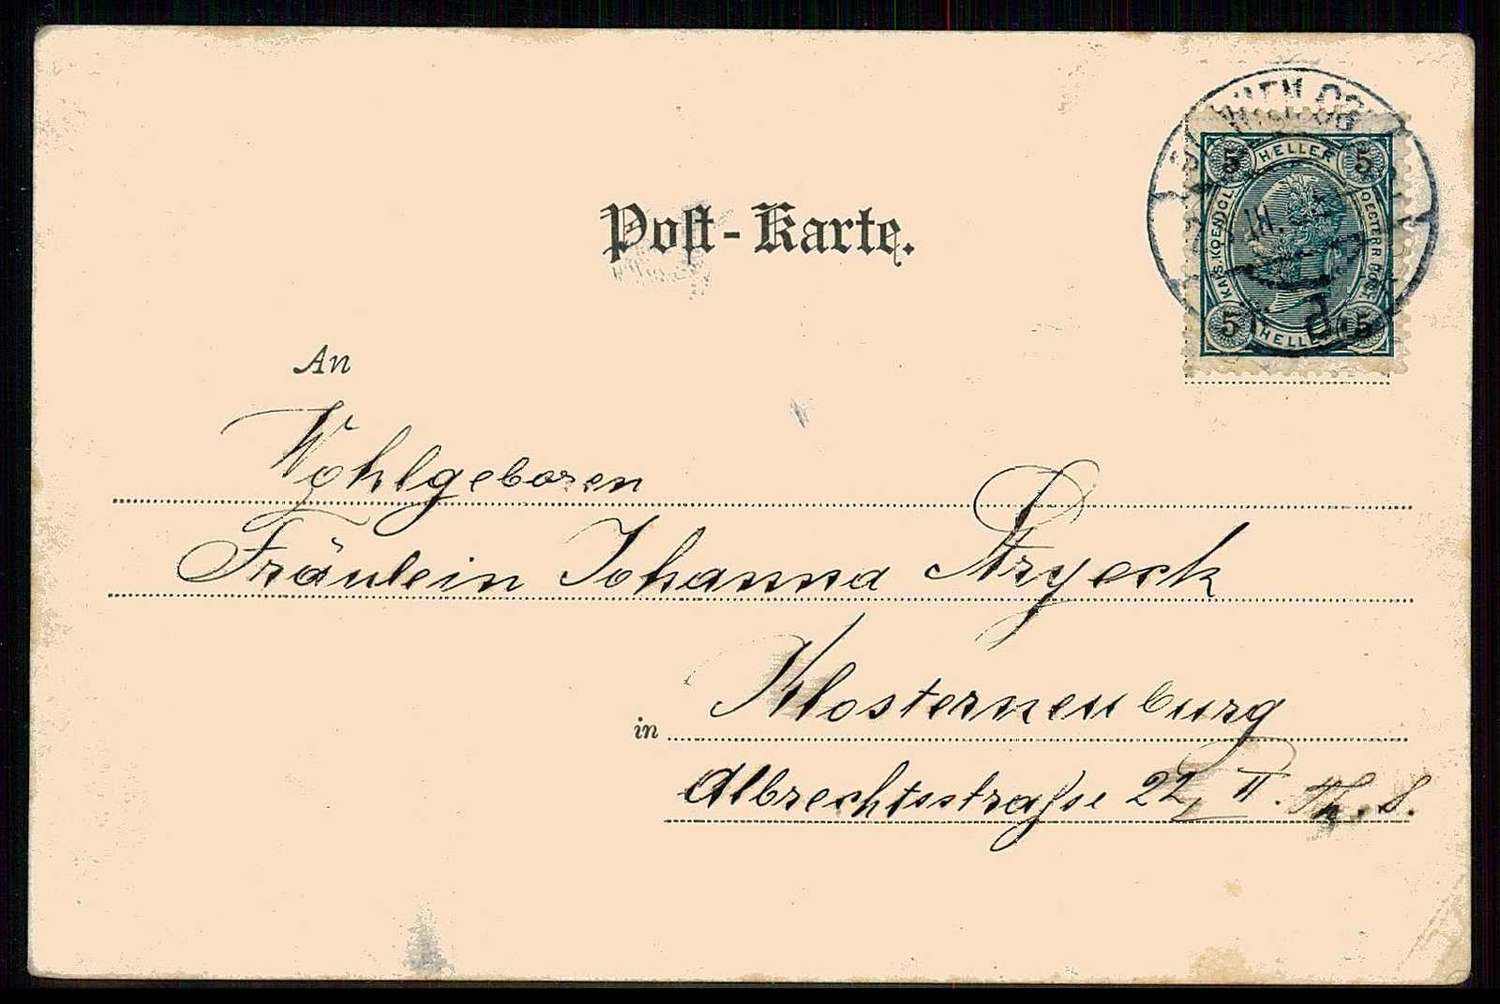 HELLER
5 5
KAIS.KOENIGL. OESTERR.POST
5 5
HELLER
Post-Karte.
An
Wohlgeboren
Fräulein Johanna
in Klosterneuburg
Albrechtsstraße 22 II. Th. 8.